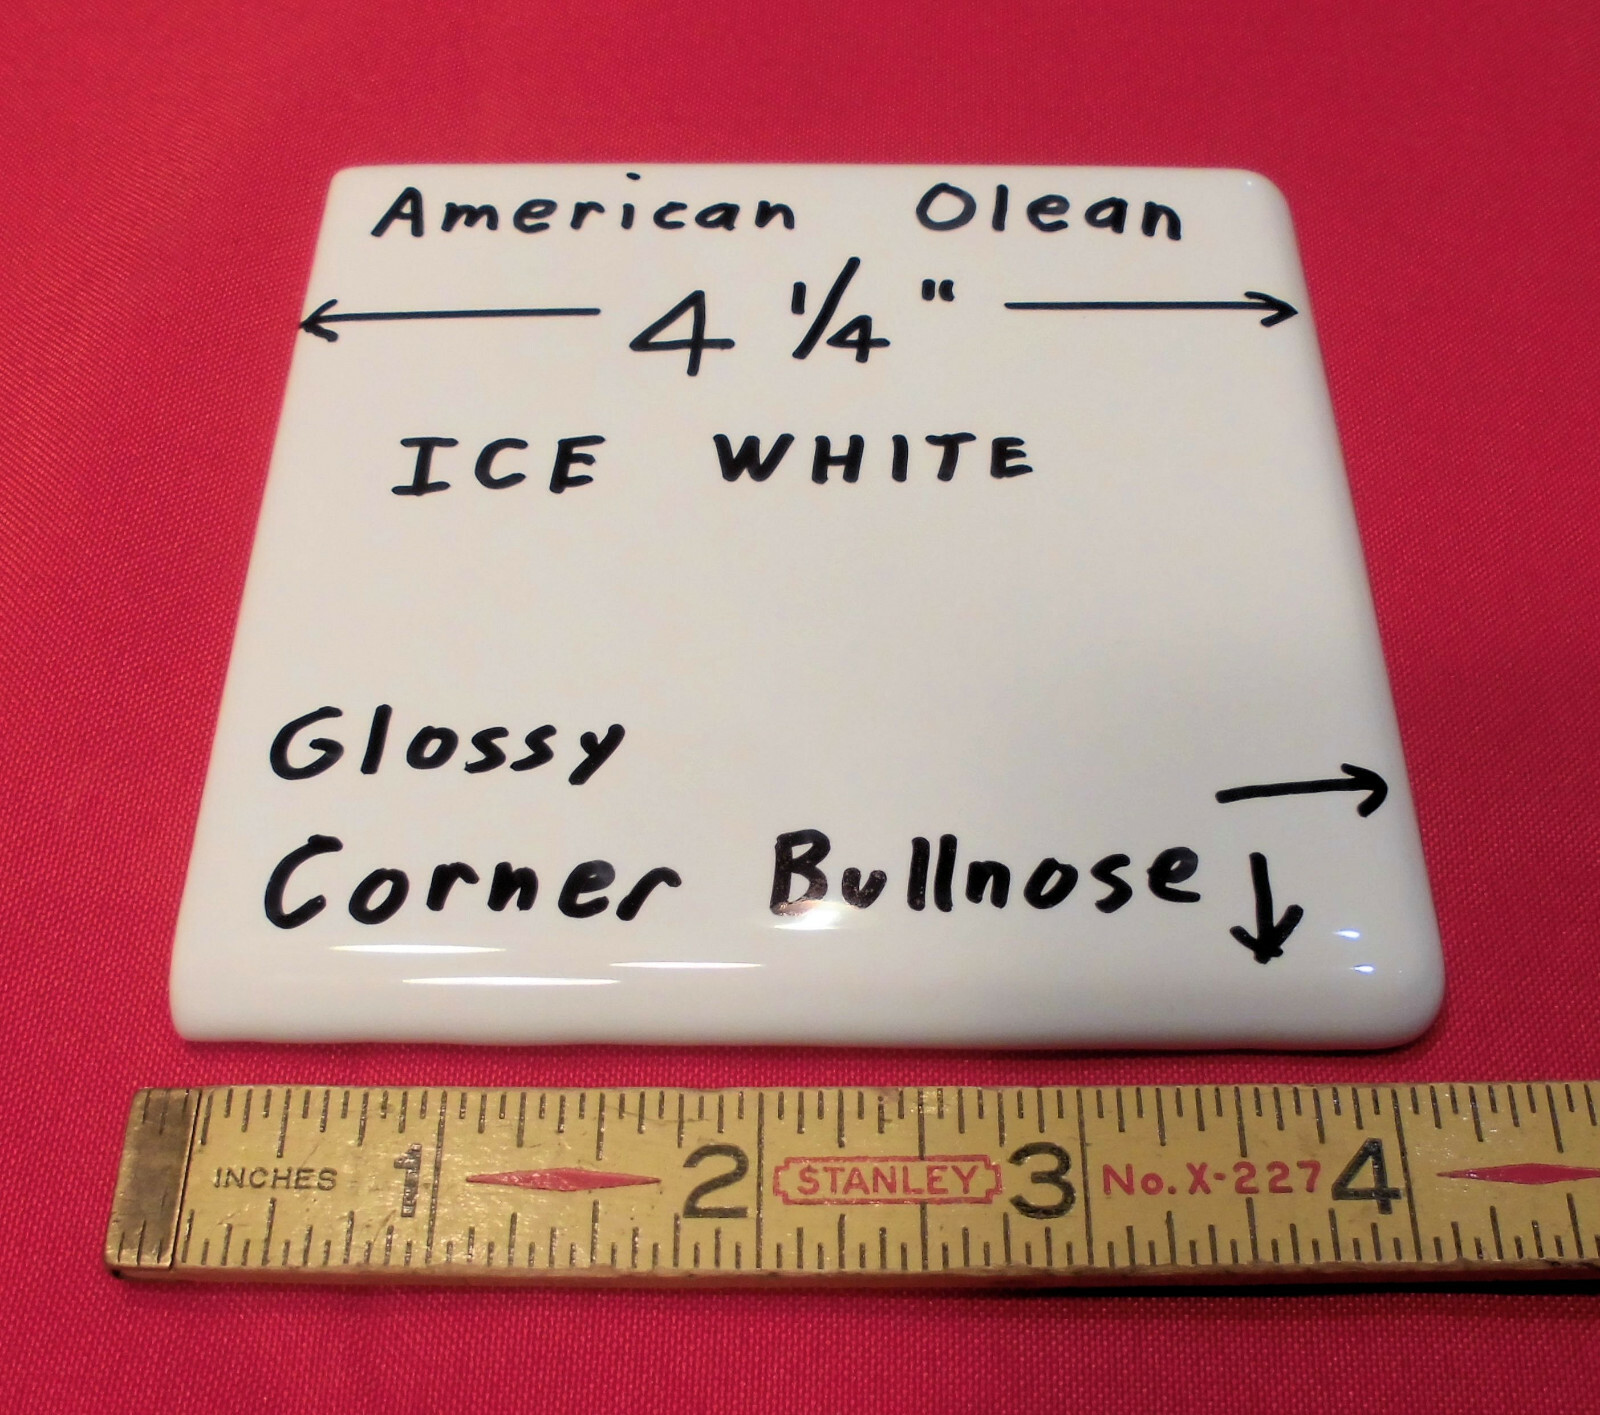 American Olean
4 1/4"
ICE WHITE
Glossy
Corner Bullnose
INCHES 1 2 STANLEY 3 No. X-227 4